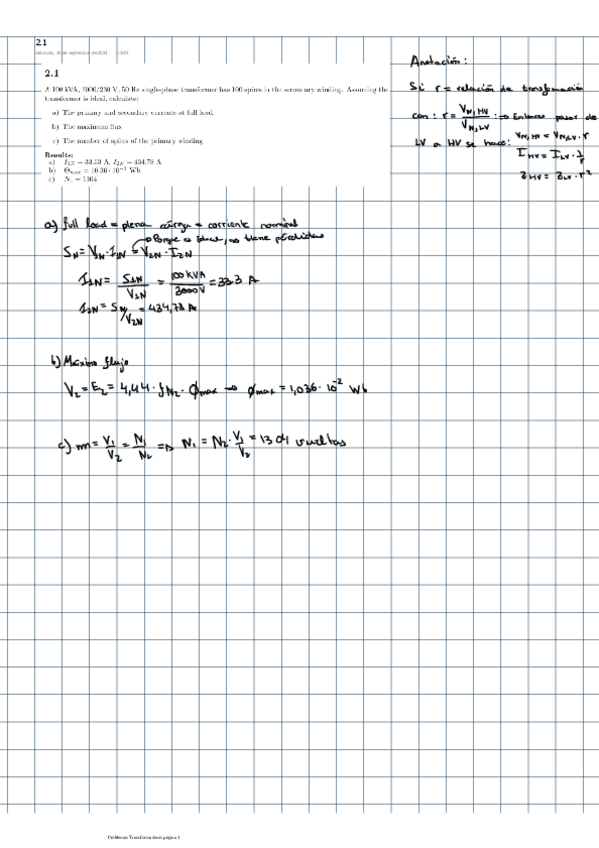 21
2.1
A 100 kVA, 3000/230 V, 50 Hz single-phase transformer has 100 spires in the secundary winding. Assuming the
transformer is ideal, calculate:
a) The primary and secundary currents at full load
b) The maximum flux
c) The number of spires of the primary winding
Results:
a) I₁N = 33.33 A, I₂N = 434.78 A
b) Φmax = 10.36 · 10⁻³ Wb
c) N₁ = 1304
Anotación:
Si r = relación de transformación
con: r = V_N,HV / V_N,LV :→ Entonces pasar de
LV a HV se hace: V_N,HV = V_N,LV · r
I_HV = I_LV · 1/r
Z_HV = Z_LV · r²
a) full load = plena carga = corriente nominal
→ Porque es ideal, no tiene pérdidas
S_N = V₁N · I₁N = V₂N · I₂N
I₁N = S₁N / V₁N = 100 kVA / 3000 V = 33.3 A
I₂N = S_N / V₂N = 434,78 A
b) Máximo flujo
V₂ = E₂ = 4,44 · f N₂ · ϕmax → ϕmax = 1,036 · 10⁻² Wb
c) m = V₁ / V₂ = N₁ / N₂ ⇒ N₁ = N₂ · V₁ / V₂ = 1304 vueltas
Problemas Transformadores página 1